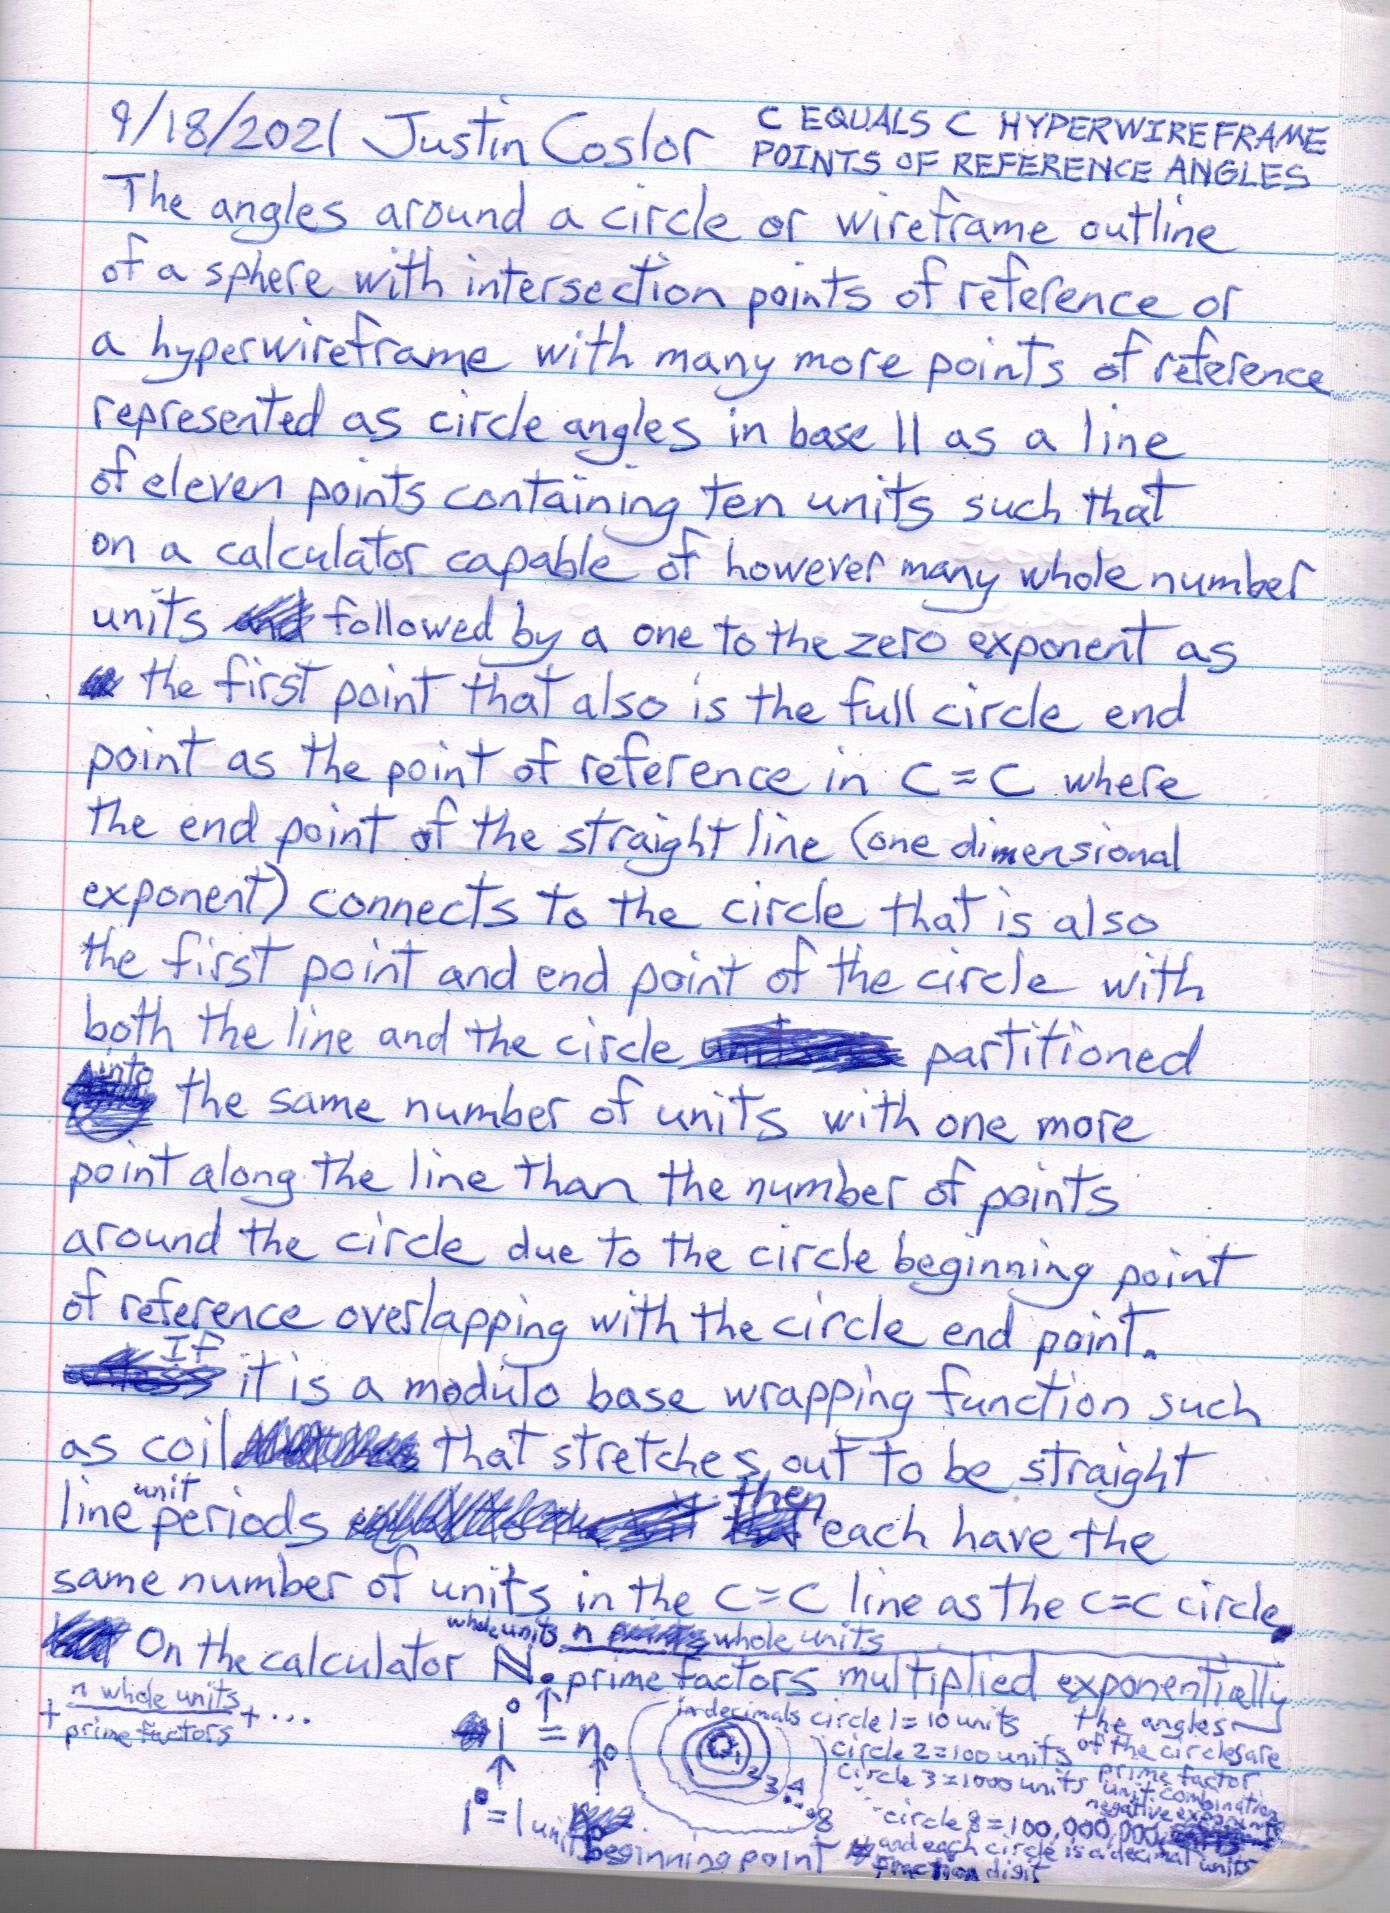 9/18/2021 Justin Coslor
C EQUALS C HYPERWIREFRAME
POINTS OF REFERENCE ANGLES
The angles around a circle or wireframe outline
of a sphere with intersection points of reference or
a hyperwireframe with many more points of reference
represented as circle angles in base 11 as a line
of eleven points containing ten units such that
on a calculator capable of however many whole number
units followed by a one to the zero exponent as
the first point that also is the full circle end
point as the point of reference in C=C where
the end point of the straight line (one dimensional
exponent) connects to the circle that is also
the first point and end point of the circle with
both the line and the circle partitioned
into the same number of units with one more
point along the line than the number of points
around the circle due to the circle beginning point
of reference overlapping with the circle end point.
If it is a modulo base wrapping function such
as coil that stretches out to be straight
line unit periods then each have the
same number of units in the C=C line as the C=C circle.
whole units n whole units
On the calculator N. prime factors multiplied exponentially
+ n whole units + ...
prime factors
1° = n.
1° = 1 unit
beginning point
1 2 3 4 8
in decimals circle 1 = 10 units
circle 2 = 100 units
circle 3 = 1000 units
circle 8 = 100,000,000 units
and each circle is a decimal
fraction digit
the angles
of the circles are
prime factor
unit combination
negative exponents